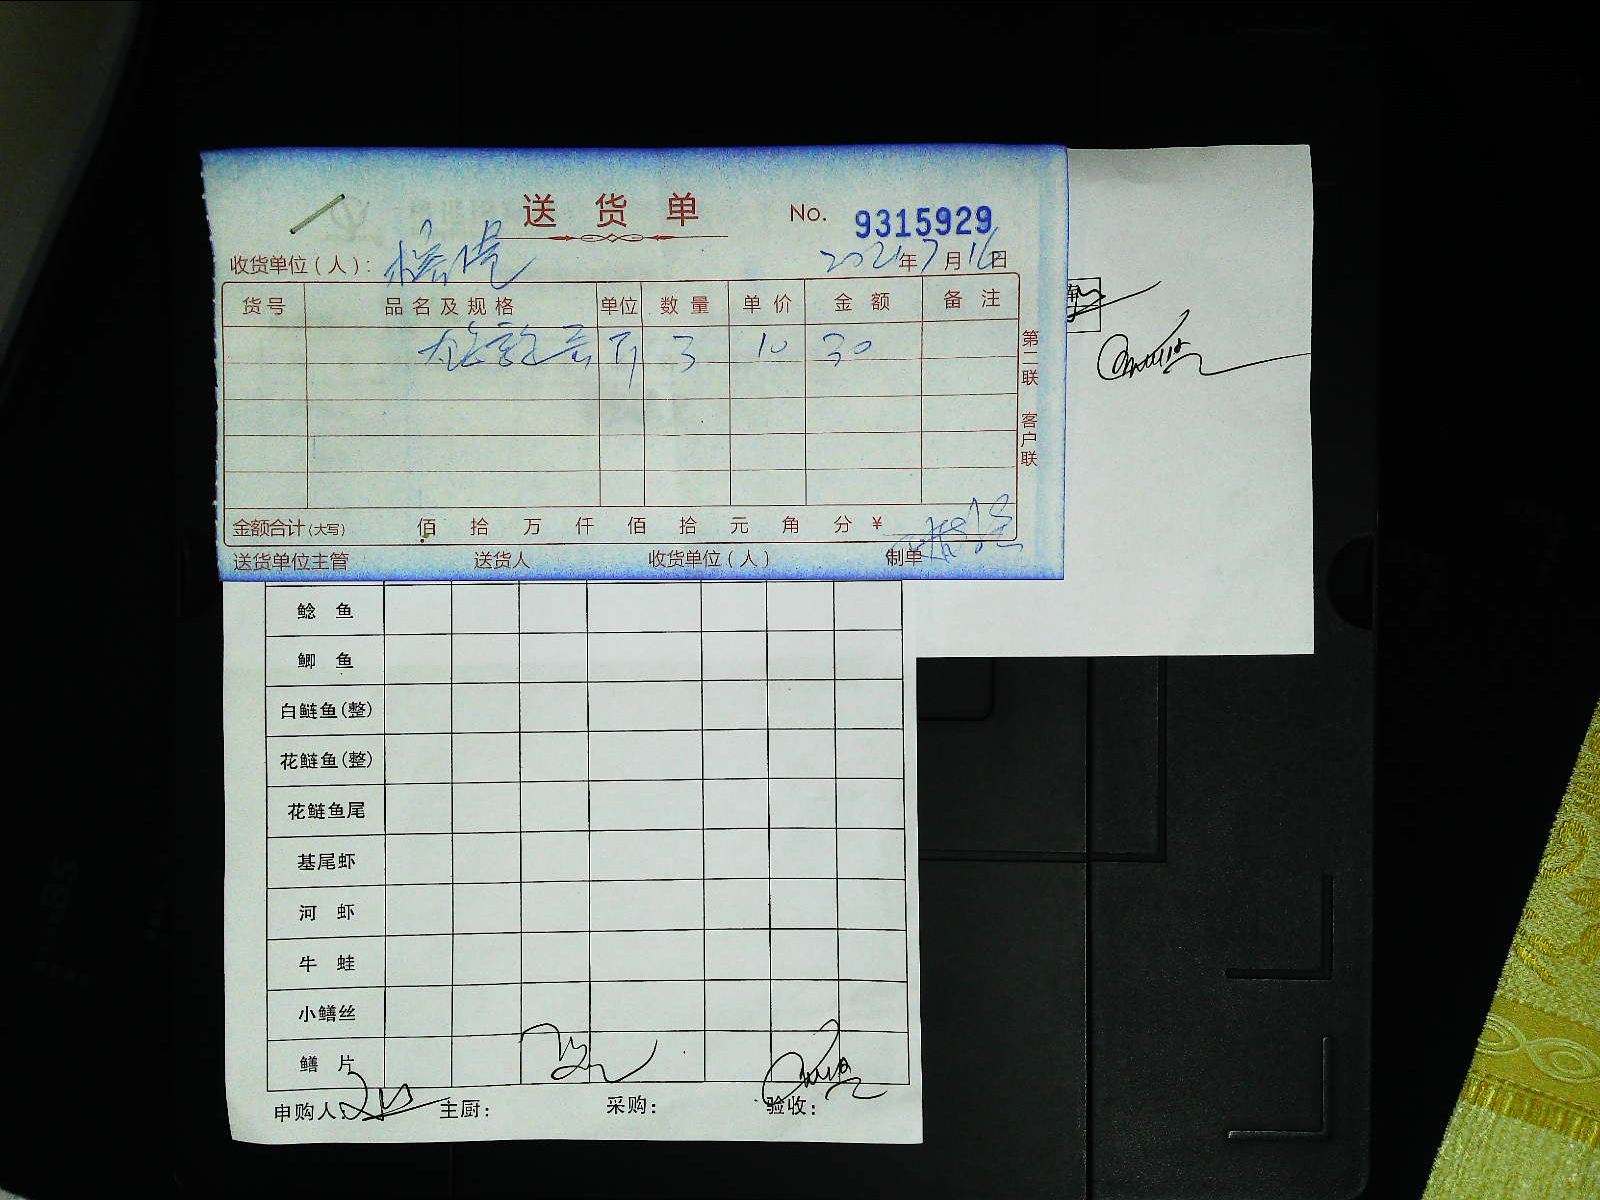 送货单 No. 9315929
收货单位(人): 2021年7月16日
货号 品名及规格 单位 数量 单价 金额 备注
斤 3 10 30
第二联 客户联
金额合计(大写) 佰 拾 万 仟 佰 拾 元 角 分 ¥
送货单位主管 送货人 收货单位(人) 制单
鲶鱼
鲫鱼
白鲢鱼(整)
花鲢鱼(整)
花鲢鱼尾
基尾虾
河虾
牛蛙
小鳝丝
鳝片
申购人: 主厨: 采购: 验收: